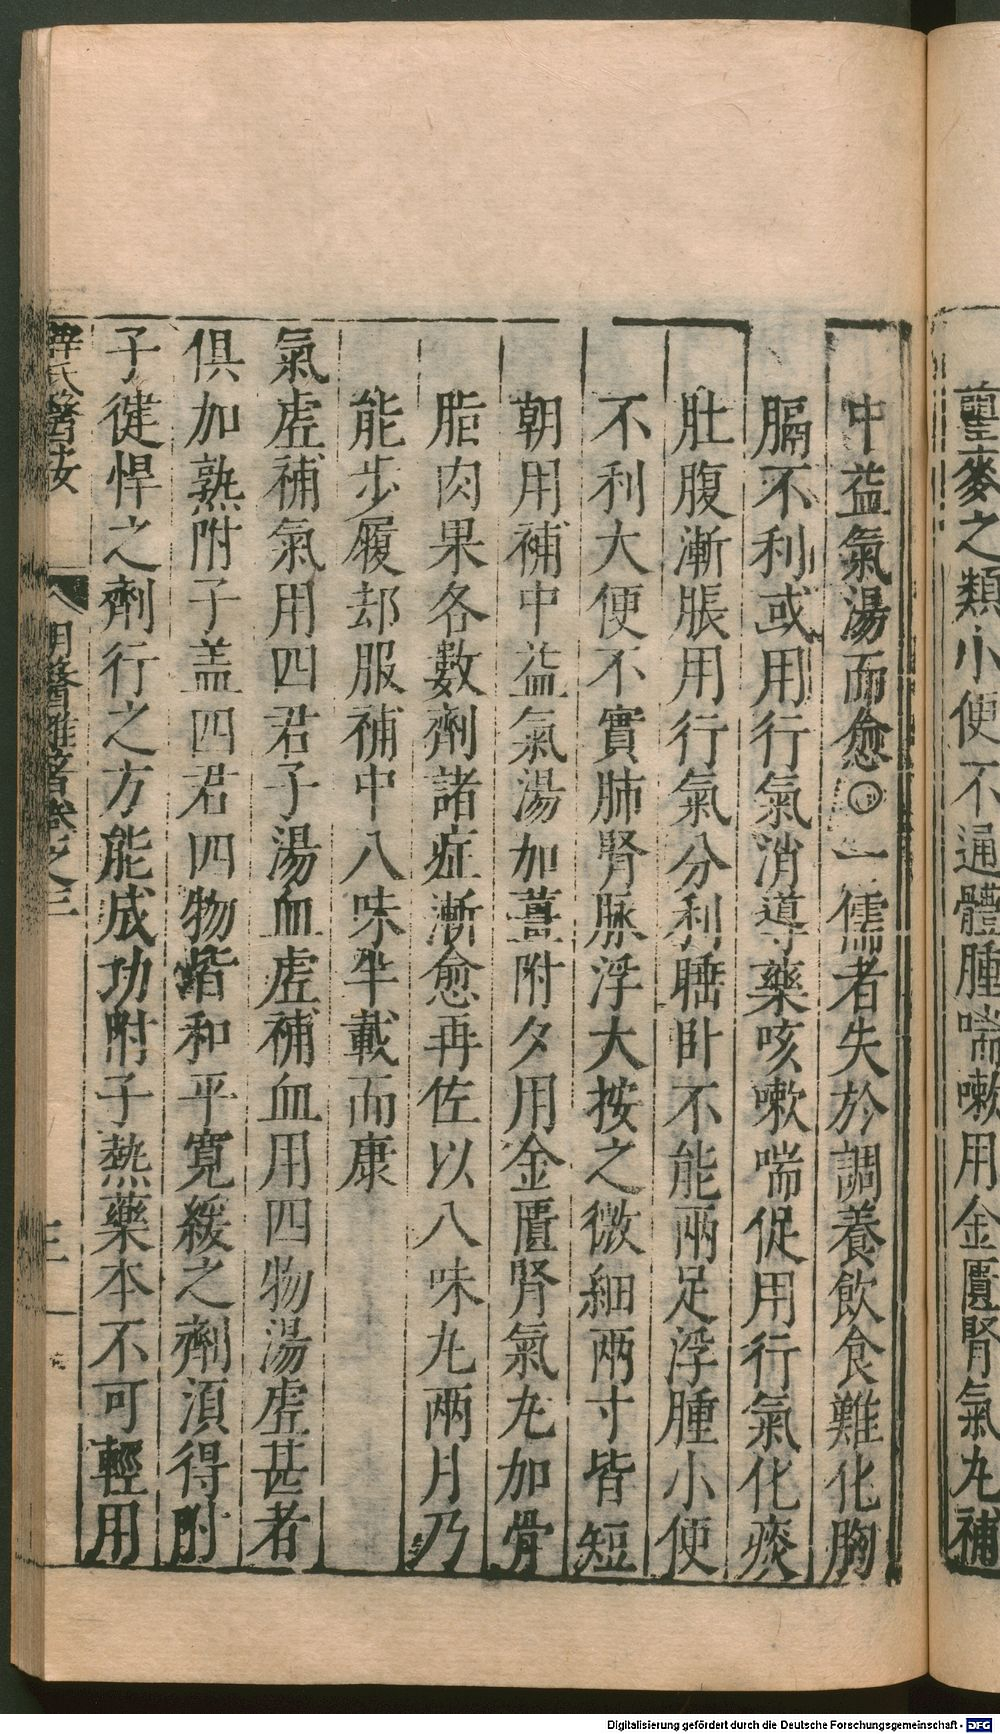 瞿麥之類小便不通體腫喘嗽用金匱腎氣丸補
中益氣湯而愈○一儒者失於調養飲食難化胸
膈不利或用行氣消導藥咳嗽喘促用行氣化痰
肚腹漸脹用行氣分利睡卧不能兩足浮腫小便
不利大便不實肺腎脉浮大按之微細兩寸皆短
朝用補中益氣湯加薑附夕用金匱腎氣丸加骨
脂肉果各數劑諸症漸愈再佐以八味丸兩月乃
能步履却服補中八味半載而康
氣虛補氣用四君子湯血虛補血用四物湯虛甚者
俱加熟附子盖四君四物皆和平寬緩之劑須得附
子徤悍之劑行之方能成功附子熱藥本不可輕用
薛氏醫按 明醫雜著卷之三 三
Digitalisierung gefördert durch die Deutsche Forschungsgemeinschaft - DFG